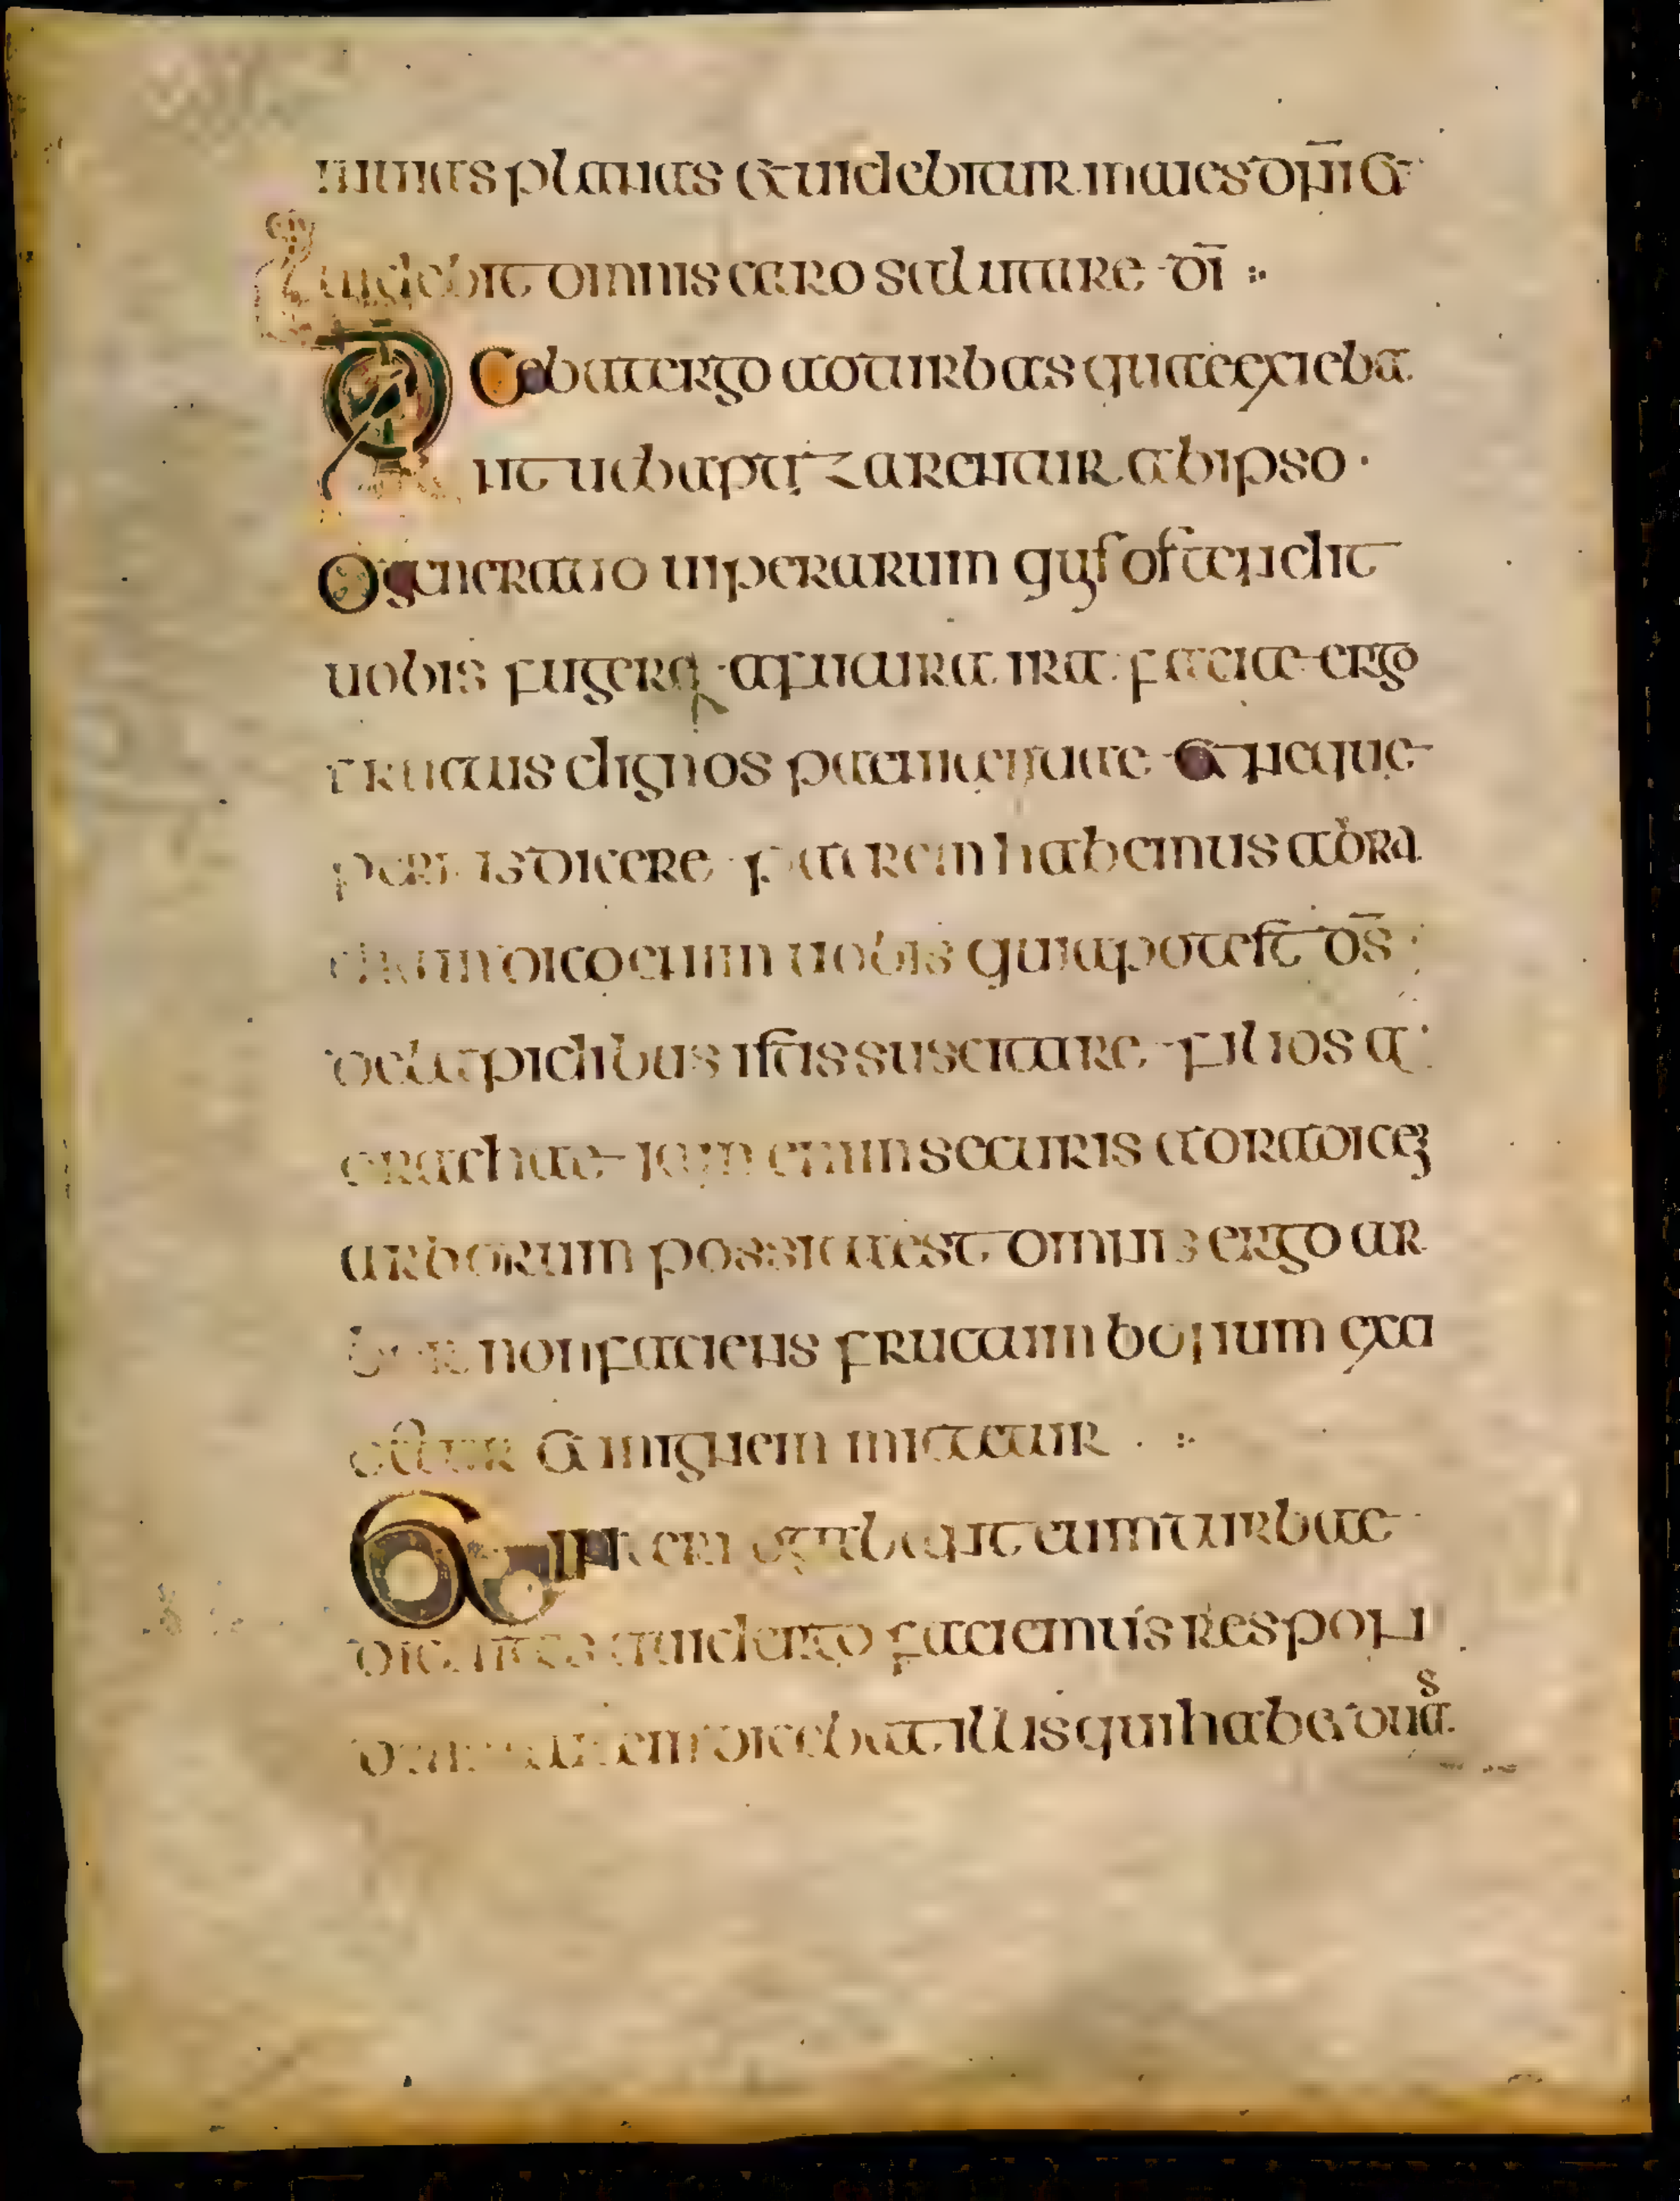 in uias planas et uidebitur maies dn̄i et
uidebit omnis caro salutare dī
Dicebat ergo ad turbas quae exieba
nt ut babtizarentur ab ipso
O generatio uiperarum quis ostendit
uobis fugere a futura ira facite ergo
fructus dignos paenitentiae et neque
dicere patrem habemus abra
dico enim uobis quia potest d̄s
de lapidibus istis suscitare filios a
brachae iam enim securis ad radicem
arborum possita est omnis ergo ar
bor non faciens fructum bonum exci
detur et in ignem mittetur
Et interrogabant eum turbae
dicentes quid ergo faciemus respon
dens autem dicebat illis qui habet duas